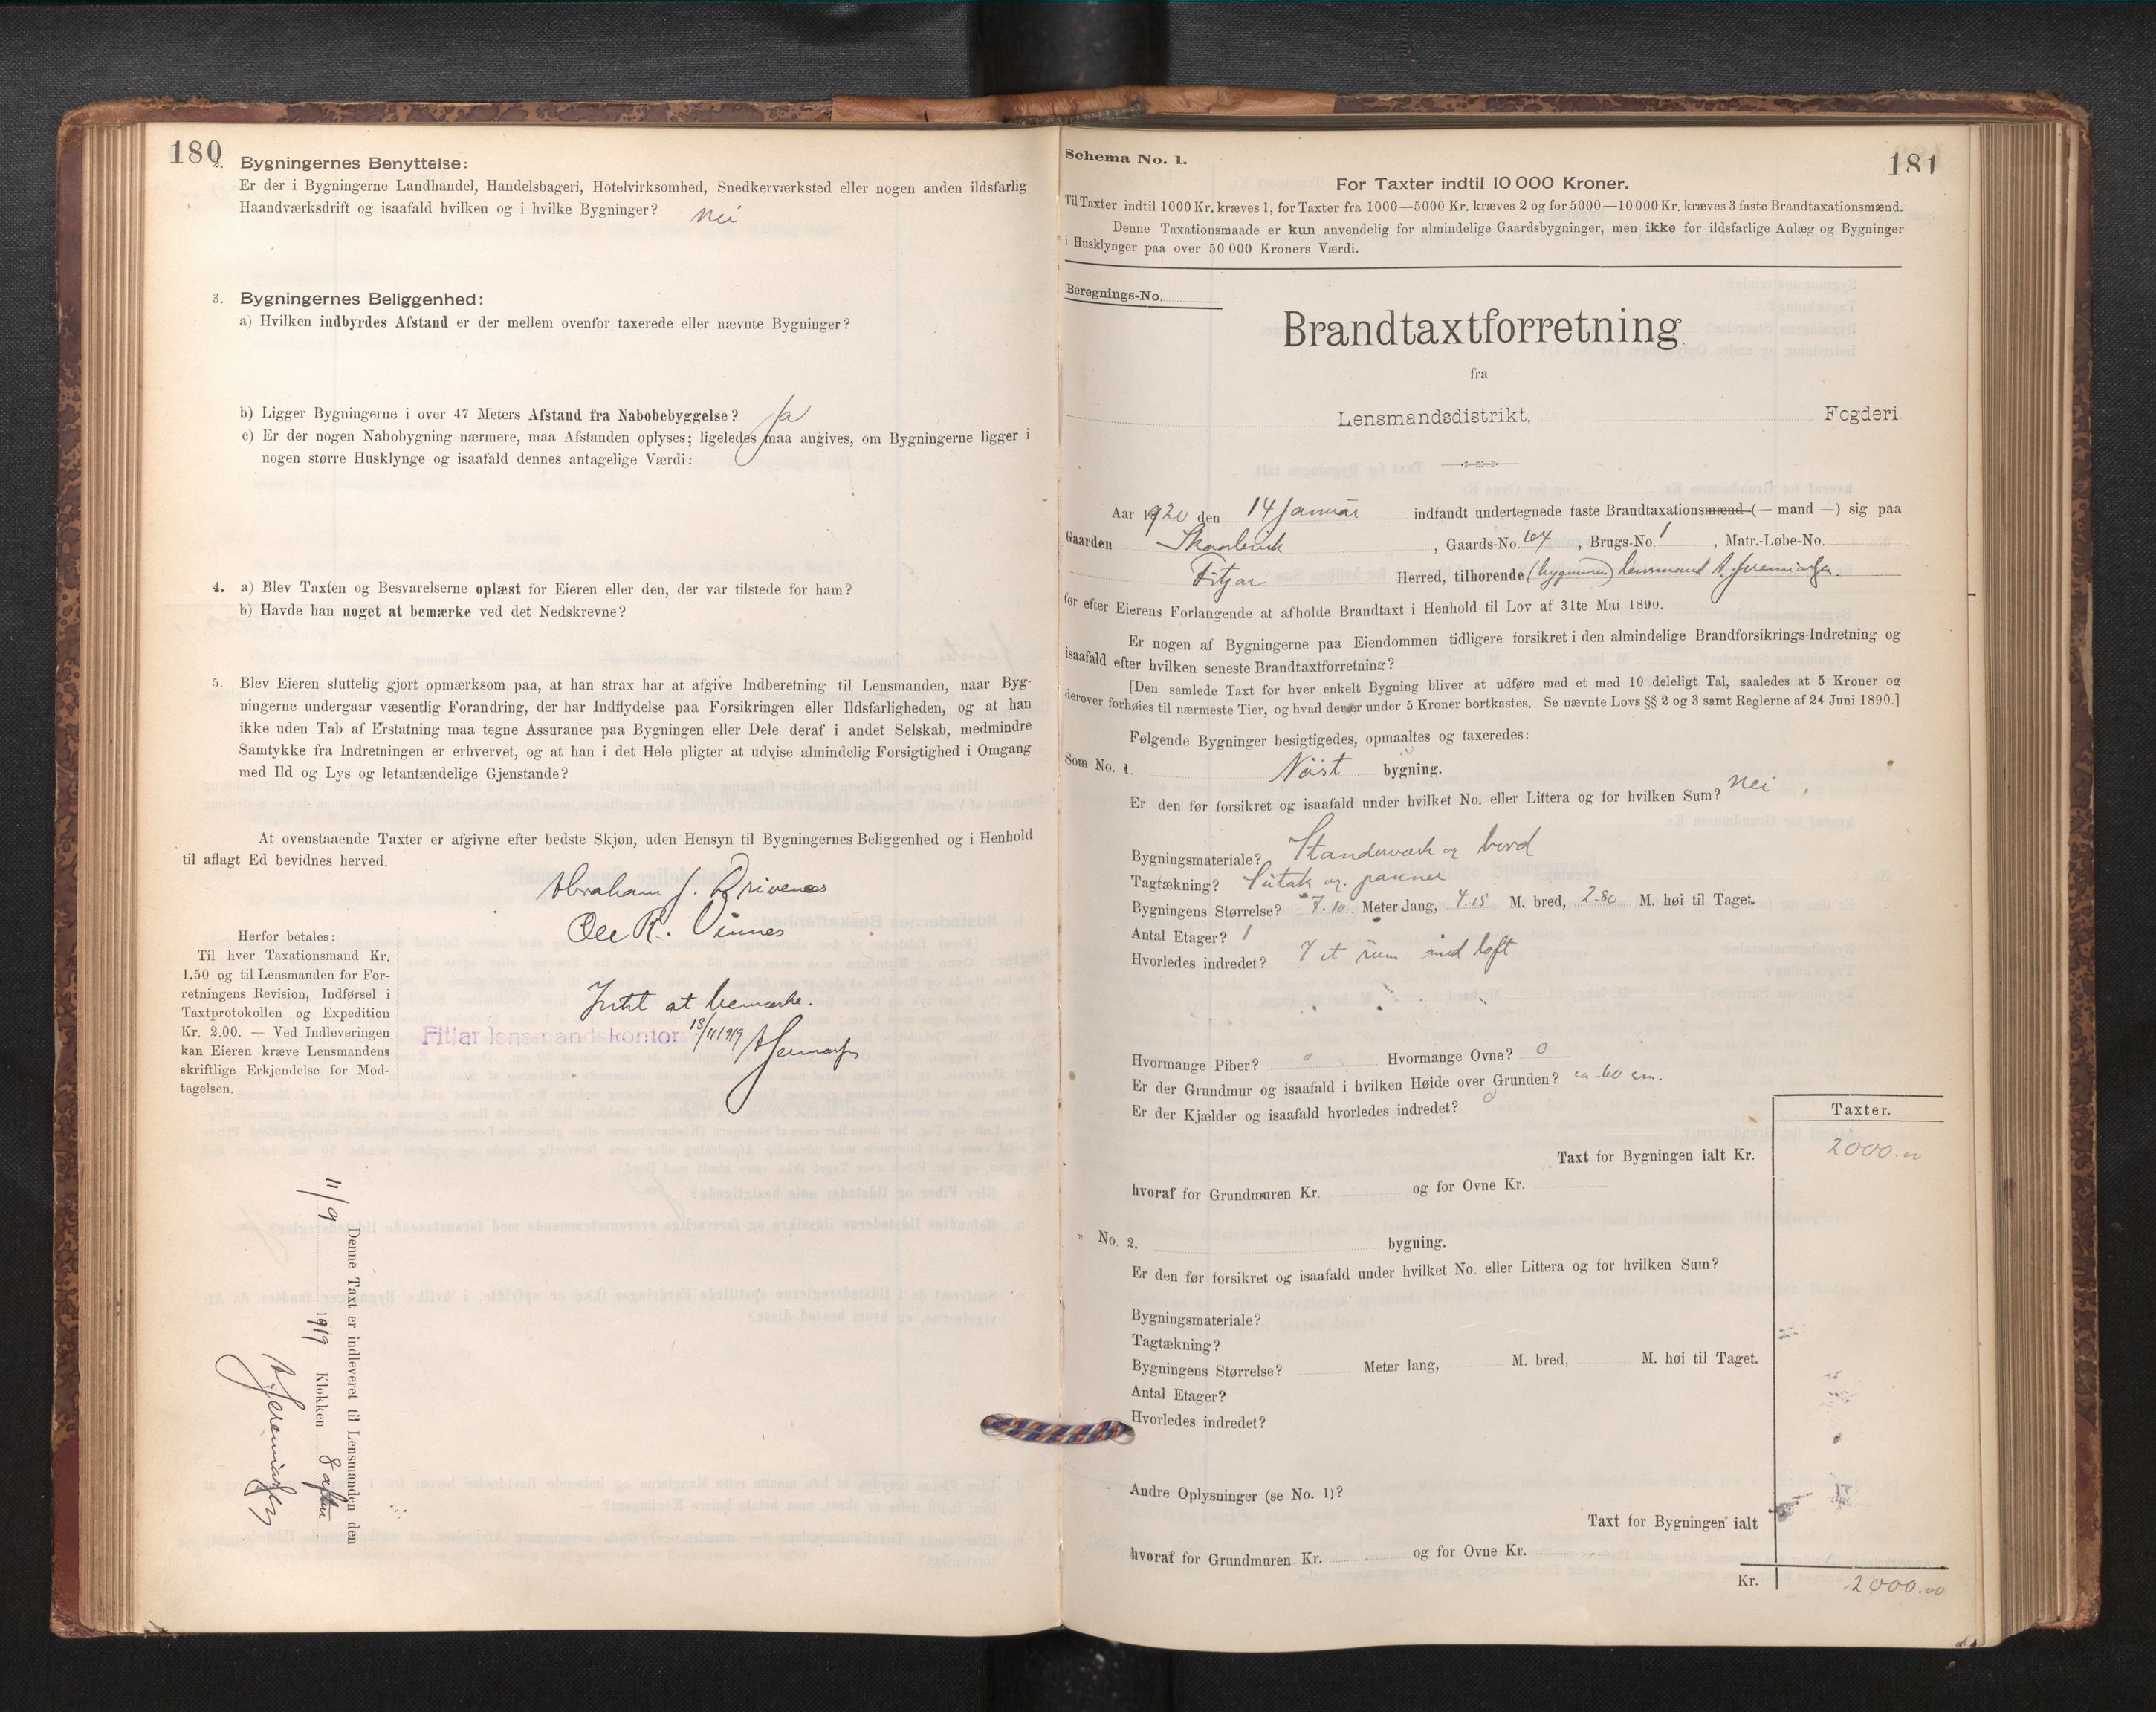 180
2. Bygningernes Benyttelse:
Er der i Bygningerne Landhandel, Handelsbageri, Hotelvirksomhed, Snedkerværksted eller nogen anden ildsfarlig
Haandværksdrift og isaafald hvilken og i hvilke Bygninger? Nei
3. Bygningernes Beliggenhed:
a) Hvilken indbyrdes Afstand er der mellem ovenfor taxerede eller nævnte Bygninger?
b) Ligger Bygningerne i over 47 Meters Afstand fra Nabobebyggelse? Ja
c) Er der nogen Nabobygning nærmere, maa Afstanden oplyses; ligeledes maa angives, om Bygningerne ligger i
nogen større Husklynge og isaafald dennes antagelige Værdi:
4. a) Blev Taxten og Besvarelserne oplæst for Eieren eller den, der var tilstede for ham?
b) Havde han noget at bemærke ved det Nedskrevne?
5. Blev Eieren sluttelig gjort opmærksom paa, at han strax har at afgive Indberetning til Lensmanden, naar Byg-
ningerne undergaar væsentlig Forandring, der har Indflydelse paa Forsikringen eller Ildsfarligheden, og at han
ikke uden Tab af Erstatning maa tegne Assurance paa Bygningen eller Dele deraf i andet Selskab, medmindre
Samtykke fra Indretningen er erhvervet, og at han i det Hele pligter at udvise almindelig Forsigtighed i Omgang
med Ild og Lys og letantændelige Gjenstande?
At ovenstaaende Taxter er afgivne efter bedste Skjøn, uden Hensyn til Bygningernes Beliggenhed og i Henhold
til aflagt Ed bevidnes herved.
Abraham J. Drivenes
Ole R. Vinnes
Herfor betales:
Til hver Taxationsmand Kr.
1.50 og til Lensmanden for For-
retningens Revision, Indførsel i
Taxtprotokollen og Expedition
Kr. 2.00. — Ved Indleveringen
kan Eieren kræve Lensmandens
skriftlige Erkjendelse for Mod-
tagelsen.
Intet at bemærke.
Fitjar lensmandskontor 13/11 1919 A Jeremiasen
Denne Taxt er indleveret til Lensmanden den
11/9 1919 Klokken 8 aften
A Jeremiasen
181
Schema No. 1.
For Taxter indtil 10 000 Kroner.
Til Taxter indtil 1000 Kr. kræves 1, for Taxter fra 1000—5000 Kr. kræves 2 og for 5000—10000 Kr. kræves 3 faste Brandtaxationsmænd.
Denne Taxationsmaade er kun anvendelig for almindelige Gaardsbygninger, men ikke for ildsfarlige Anlæg og Bygninger
i Husklynger paa over 50 000 Kroners Værdi.
Beregnings-No.
Brandtaxtforretning
fra
Lensmandsdistrikt, Fogderi.
Aar 1920 den 14 Januar indfandt undertegnede faste Brandtaxationsmænd (— mand —) sig paa
Gaarden Skaarbevik, Gaards-No. 64, Brugs-No. 1, Matr.-Løbe-No.
Fitjar Herred, tilhørende (bygningen) Lensmand A. Jeremiasen.
for efter Eierens Forlangende at afholde Brandtaxt i Henhold til Lov af 31te Mai 1890.
Er nogen af Bygningerne paa Eiendommen tidligere forsikret i den almindelige Brandforsikrings-Indretning og
isaafald efter hvilken seneste Brandtaxtforretning?
[Den samlede Taxt for hver enkelt Bygning bliver at udføre med et med 10 deleligt Tal, saaledes at 5 Kroner og
derover forhøies til nærmeste Tier, og hvad der er under 5 Kroner bortkastes. Se nævnte Lovs §§ 2 og 3 samt Reglerne af 24 Juni 1890.]
Følgende Bygninger besigtigedes, opmaaltes og taxeredes:
Som No. 1. Nöist bygning.
Er den før forsikret og isaafald under hvilket No. eller Littera og for hvilken Sum? Nei
Bygningsmateriale? Standerværk og bord
Tagtækning? Sutak og panner
Bygningens Størrelse? 7.10 Meter lang, 4.15 M. bred, 2.80 M. høi til Taget.
Antal Etager? 1
Hvorledes indredet? I et rum med loft
Hvormange Piber? 0 Hvormange Ovne? 0
Er der Grundmur og isaafald i hvilken Høide over Grunden? ca 60 cm.
Er der Kjælder og isaafald hvorledes indredet? 0
Taxter.
Taxt for Bygningen ialt Kr. 2000.00
hvoraf for Grundmuren Kr. og for Ovne Kr.
„ No. 2. bygning.
Er den før forsikret og isaafald under hvilket No. eller Littera og for hvilken Sum?
Bygningsmateriale?
Tagtækning?
Bygningens Størrelse? Meter lang, M. bred, M. høi til Taget.
Antal Etager?
Hvorledes indredet?
Andre Oplysninger (se No. 1)?
Taxt for Bygningen ialt
hvoraf for Grundmuren Kr. og for Ovne Kr.
Kr. 2000.00